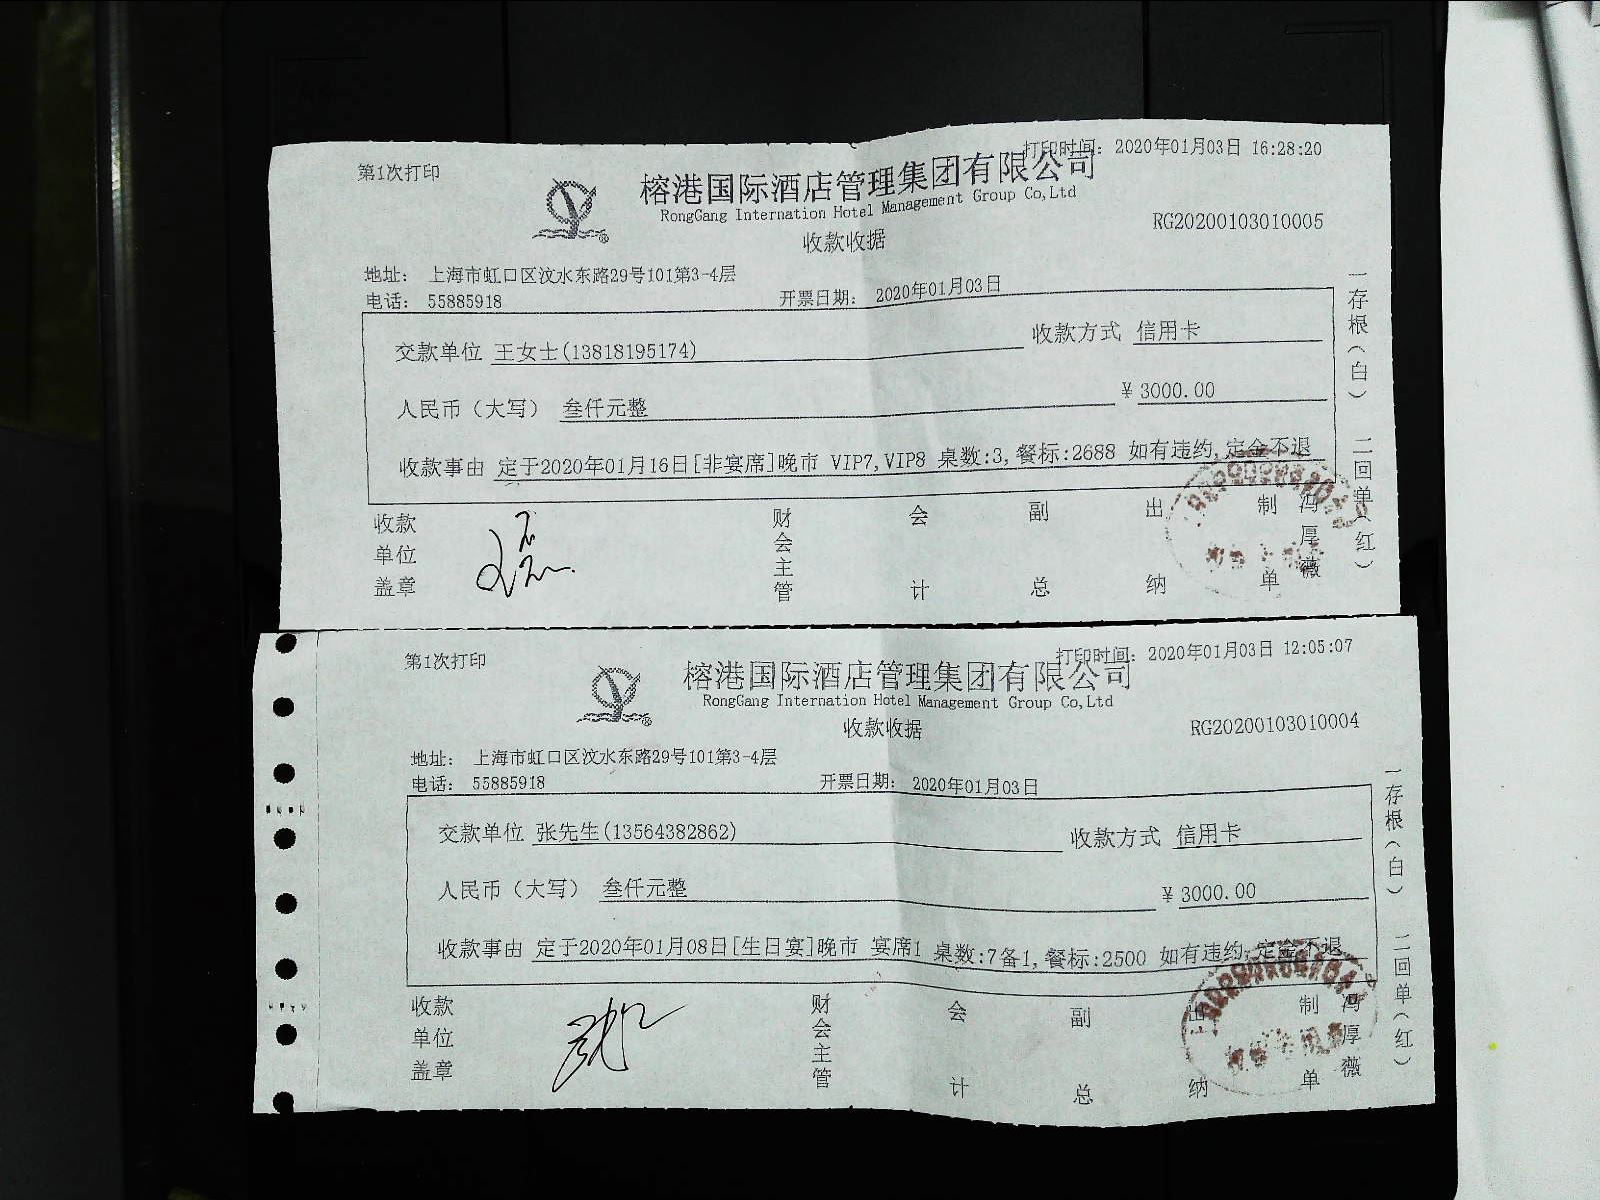 第1次打印
打印时间: 2020年01月03日 16:28:20
榕港国际酒店管理集团有限公司
RongGang Internation Hotel Management Group Co,Ltd
收款收据
RG20200103010005
地址: 上海市虹口区汶水东路29号101第3-4层
电话: 55885918
开票日期: 2020年01月03日
交款单位 王女士(13818195174)
收款方式 信用卡
人民币（大写） 叁仟元整
¥ 3000.00
收款事由 定于2020年01月16日[非宴席]晚市 VIP7,VIP8 桌数:3,餐标:2688 如有违约,定金不退
收款单位盖章
财会主管
会计
副总
出纳
制单
冯厚薇
一存根（白）
二回单（红）
第1次打印
打印时间: 2020年01月03日 12:05:07
榕港国际酒店管理集团有限公司
RongGang Internation Hotel Management Group Co,Ltd
收款收据
RG20200103010004
地址: 上海市虹口区汶水东路29号101第3-4层
电话: 55885918
开票日期: 2020年01月03日
交款单位 张先生(13564382862)
收款方式 信用卡
人民币（大写） 叁仟元整
¥ 3000.00
收款事由 定于2020年01月08日[生日宴]晚市 宴席1 桌数:7备1,餐标:2500 如有违约,定金不退
收款单位盖章
财会主管
会计
副总
出纳
制单
冯厚薇
一存根（白）
二回单（红）